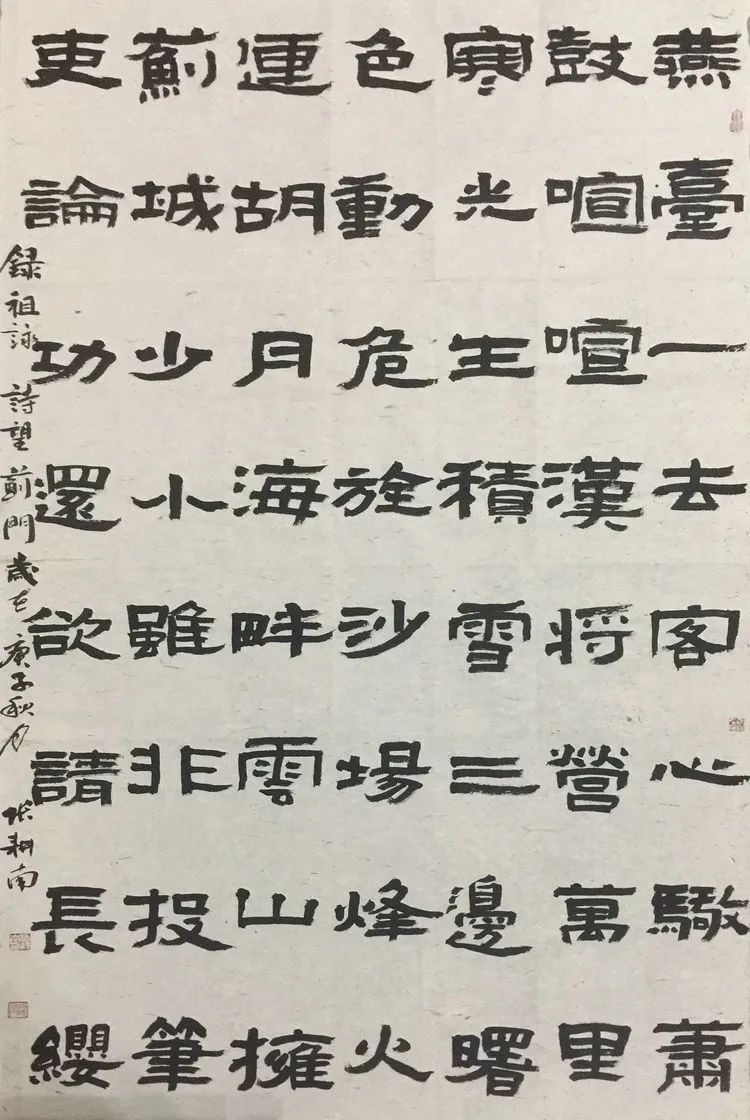 燕臺一去客心驕蕭
鼓喧喧漢将營萬里
寒光生積雪三邊曙
色動危旌沙場烽火
連胡月海畔雲山擁
薊城少小雖非投筆
吏論功還欲請長纓
録祖詠詩望薊門歲在庚子秋月張耕南